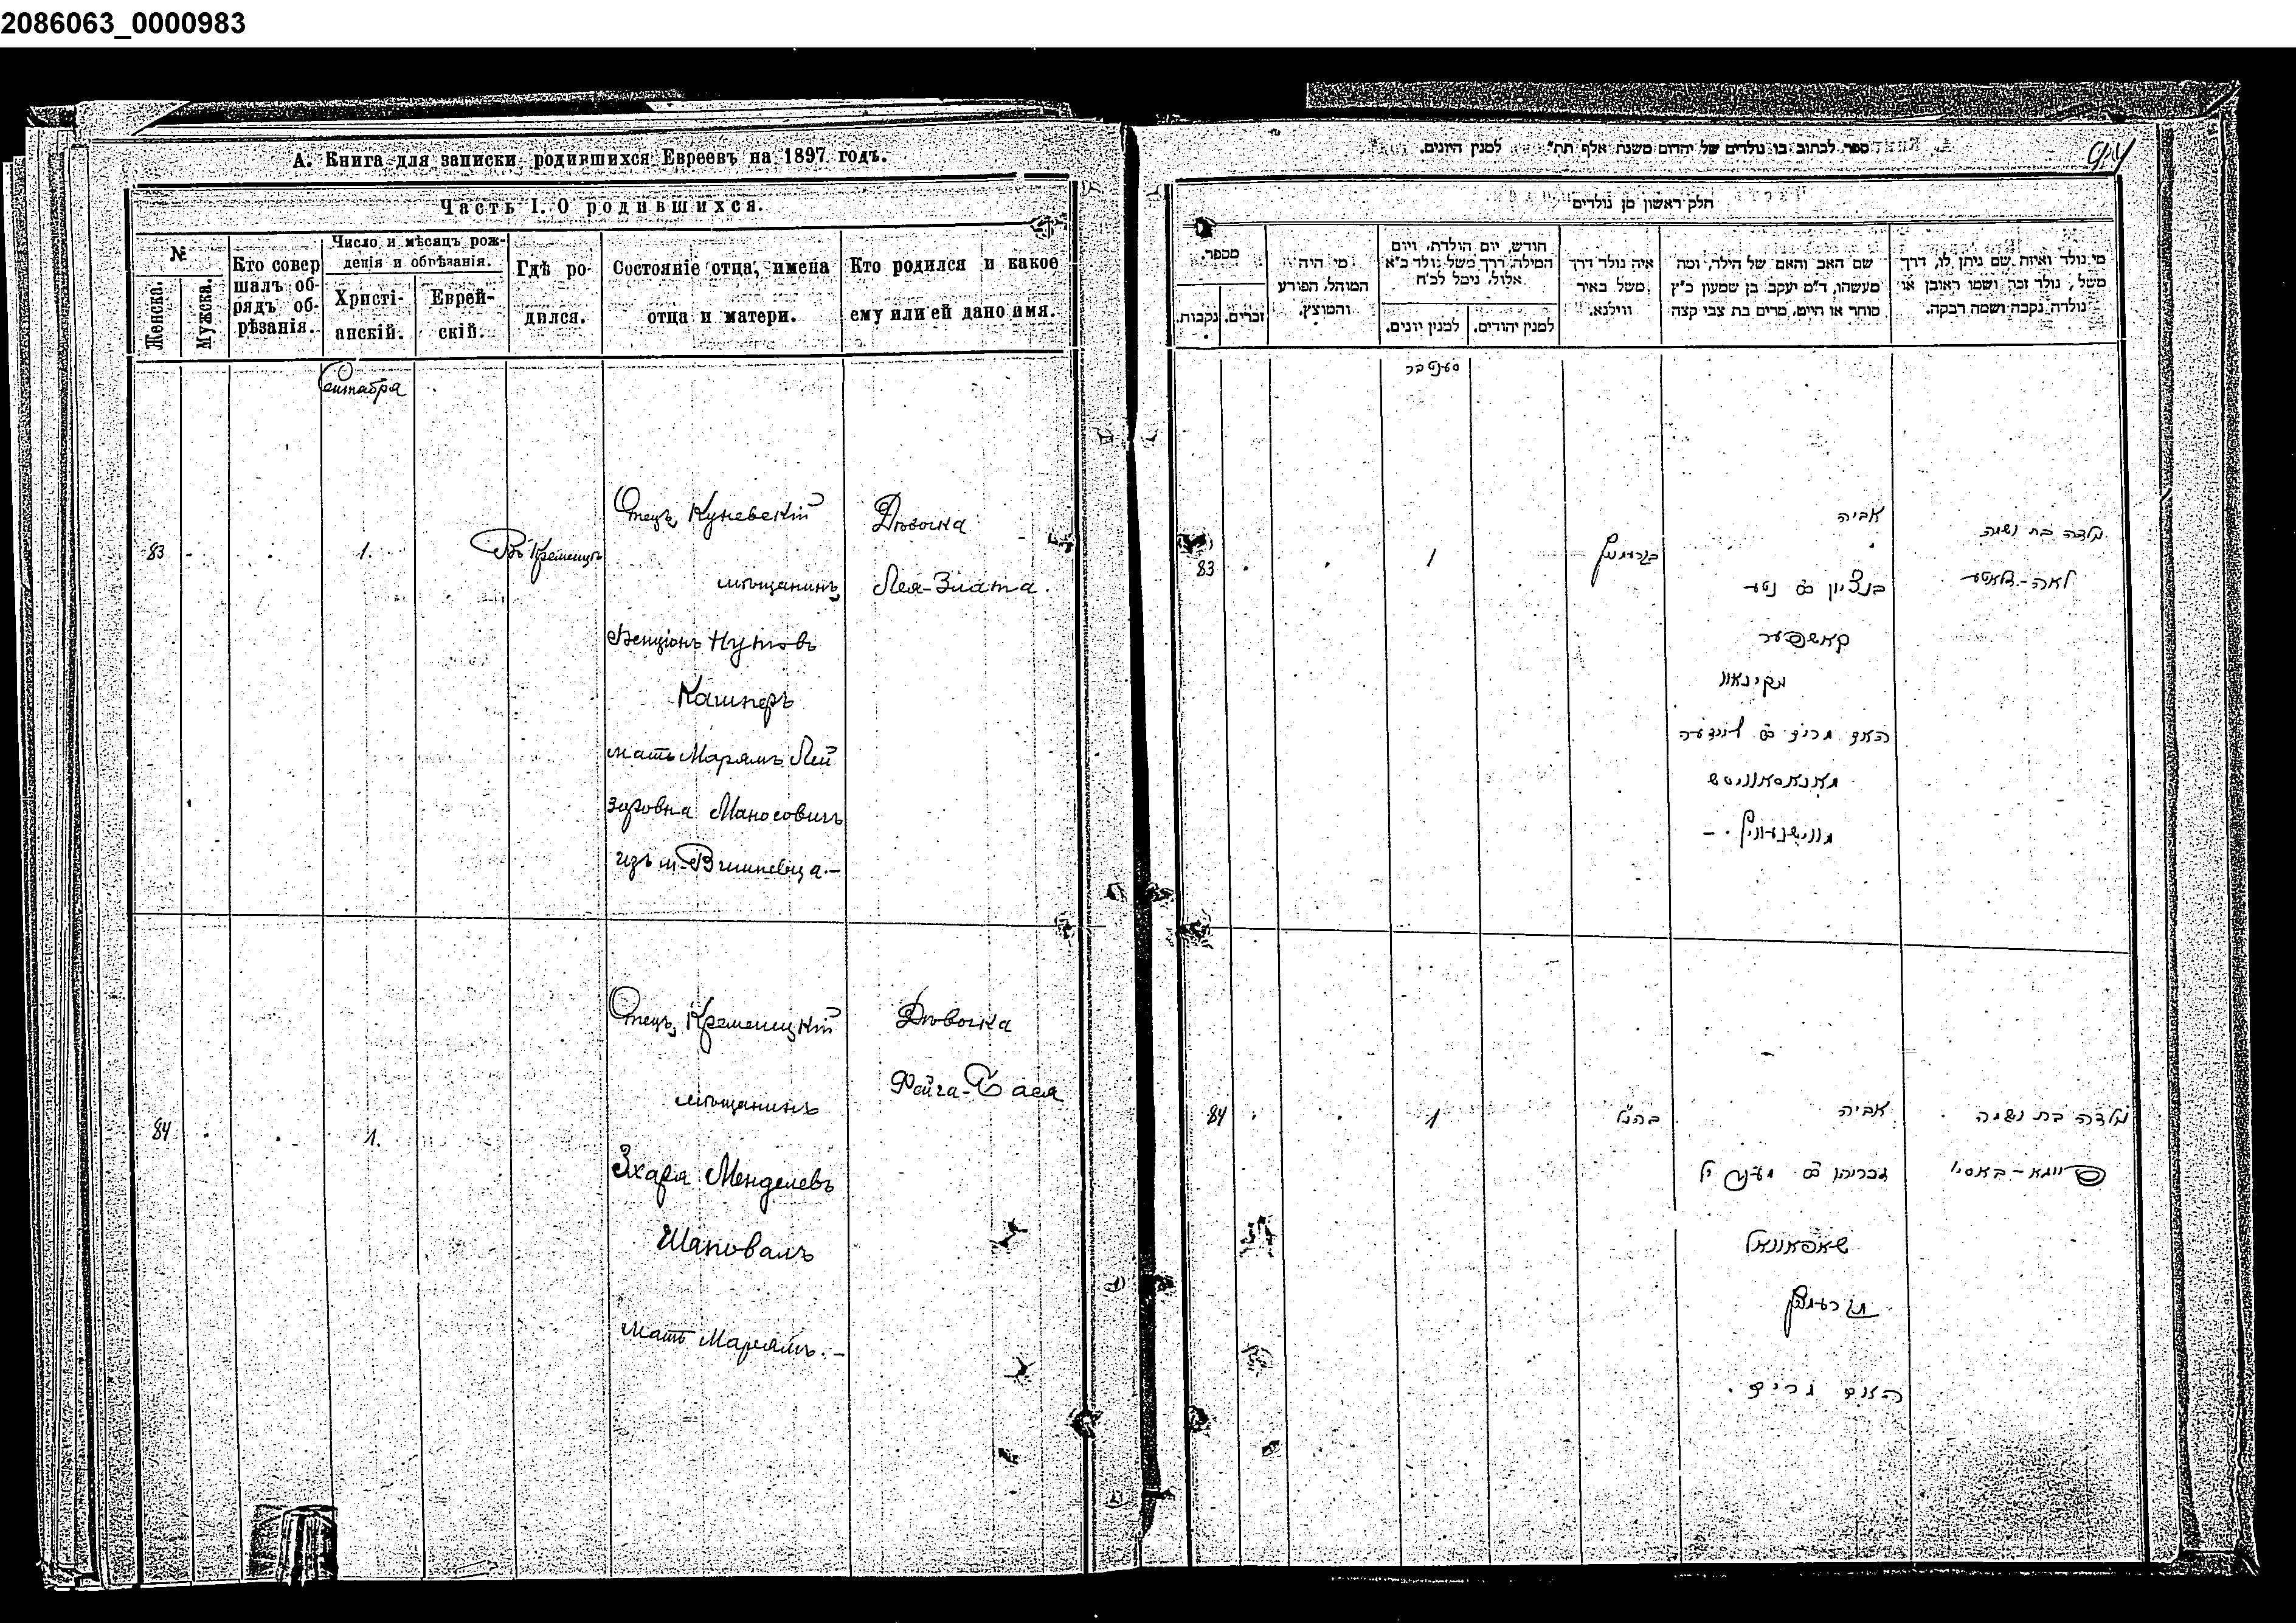 2086063_0000983
А. Книга для записки родившихся Евреевъ на 1897 годъ.
Часть I. О родившихся.
№
Женска.
Мужска.
Кто совер
шалъ об-
рядъ об-
рѣзанія.
Число и мѣсяцъ рож-
денія и обрѣзанія.
Христі-
анскій.
Еврей-
скій.
Гдѣ ро-
дился.
Состояніе отца, имена
отца и матери.
Кто родился и какое
ему или ей дано имя.
Сентября
83
1.
Въ Кременцѣ
Отецъ, Куневскій
мѣщанинъ,
Бенціонъ Нутовъ
Кашперъ
мать Марямъ Лей
зоровна Маносовичъ
изъ м. Вишневца.-
Дѣвочка
Лея-Злата.
84
1.
Отецъ, Кременецкій
мѣщанинъ
Зхаря Менделевъ
Шаповалъ
мать Марьямъ.-
Дѣвочка
Фейга-Бася
94
ספר לכתוב בו נולדים של יהדום משנת אלף תת" למנין היונים.
חלק ראשון מן נולדים
מספר.
נקבות.
זכרים.
מי היה
המוהל, הפורע
והמוצץ.
חודש, יום הולדת, ויום
המילה, דרך משל נולד כ"א
אלול, נימל לכ"ח
למנין יונים.
למנין יהודים.
איה נולד דרך
משל באיר
ווילנא.
שם האב והאם של הילד, ומה
מעשהו, ד"מ יעקב בן שמעון כ"ץ
סוחר או חייט, מרים בת צבי קצה
מי נולד ואיזה שם ניתן לו, דרך
משל, נולד זכר ושמו ראובן או
נולדה נקבה ושמה רבקה.
סענטבר
83
1
בקרעמניץ
אביה
בנציון ב"ם נטע
קאשפער
מקינאוו
האם מרים ב"ם לייזער
מאנאסאוויטש
מווישנעוויץ. -
נולדה בת ושמה
לאה-זלאטע
84
1
בהנ"ל
אביה
זכריה ב"ם מענדיל
שאפאוואל
מקרעמניץ
האם מרים.
נולדה בת ושמה
פייגא-באסיי